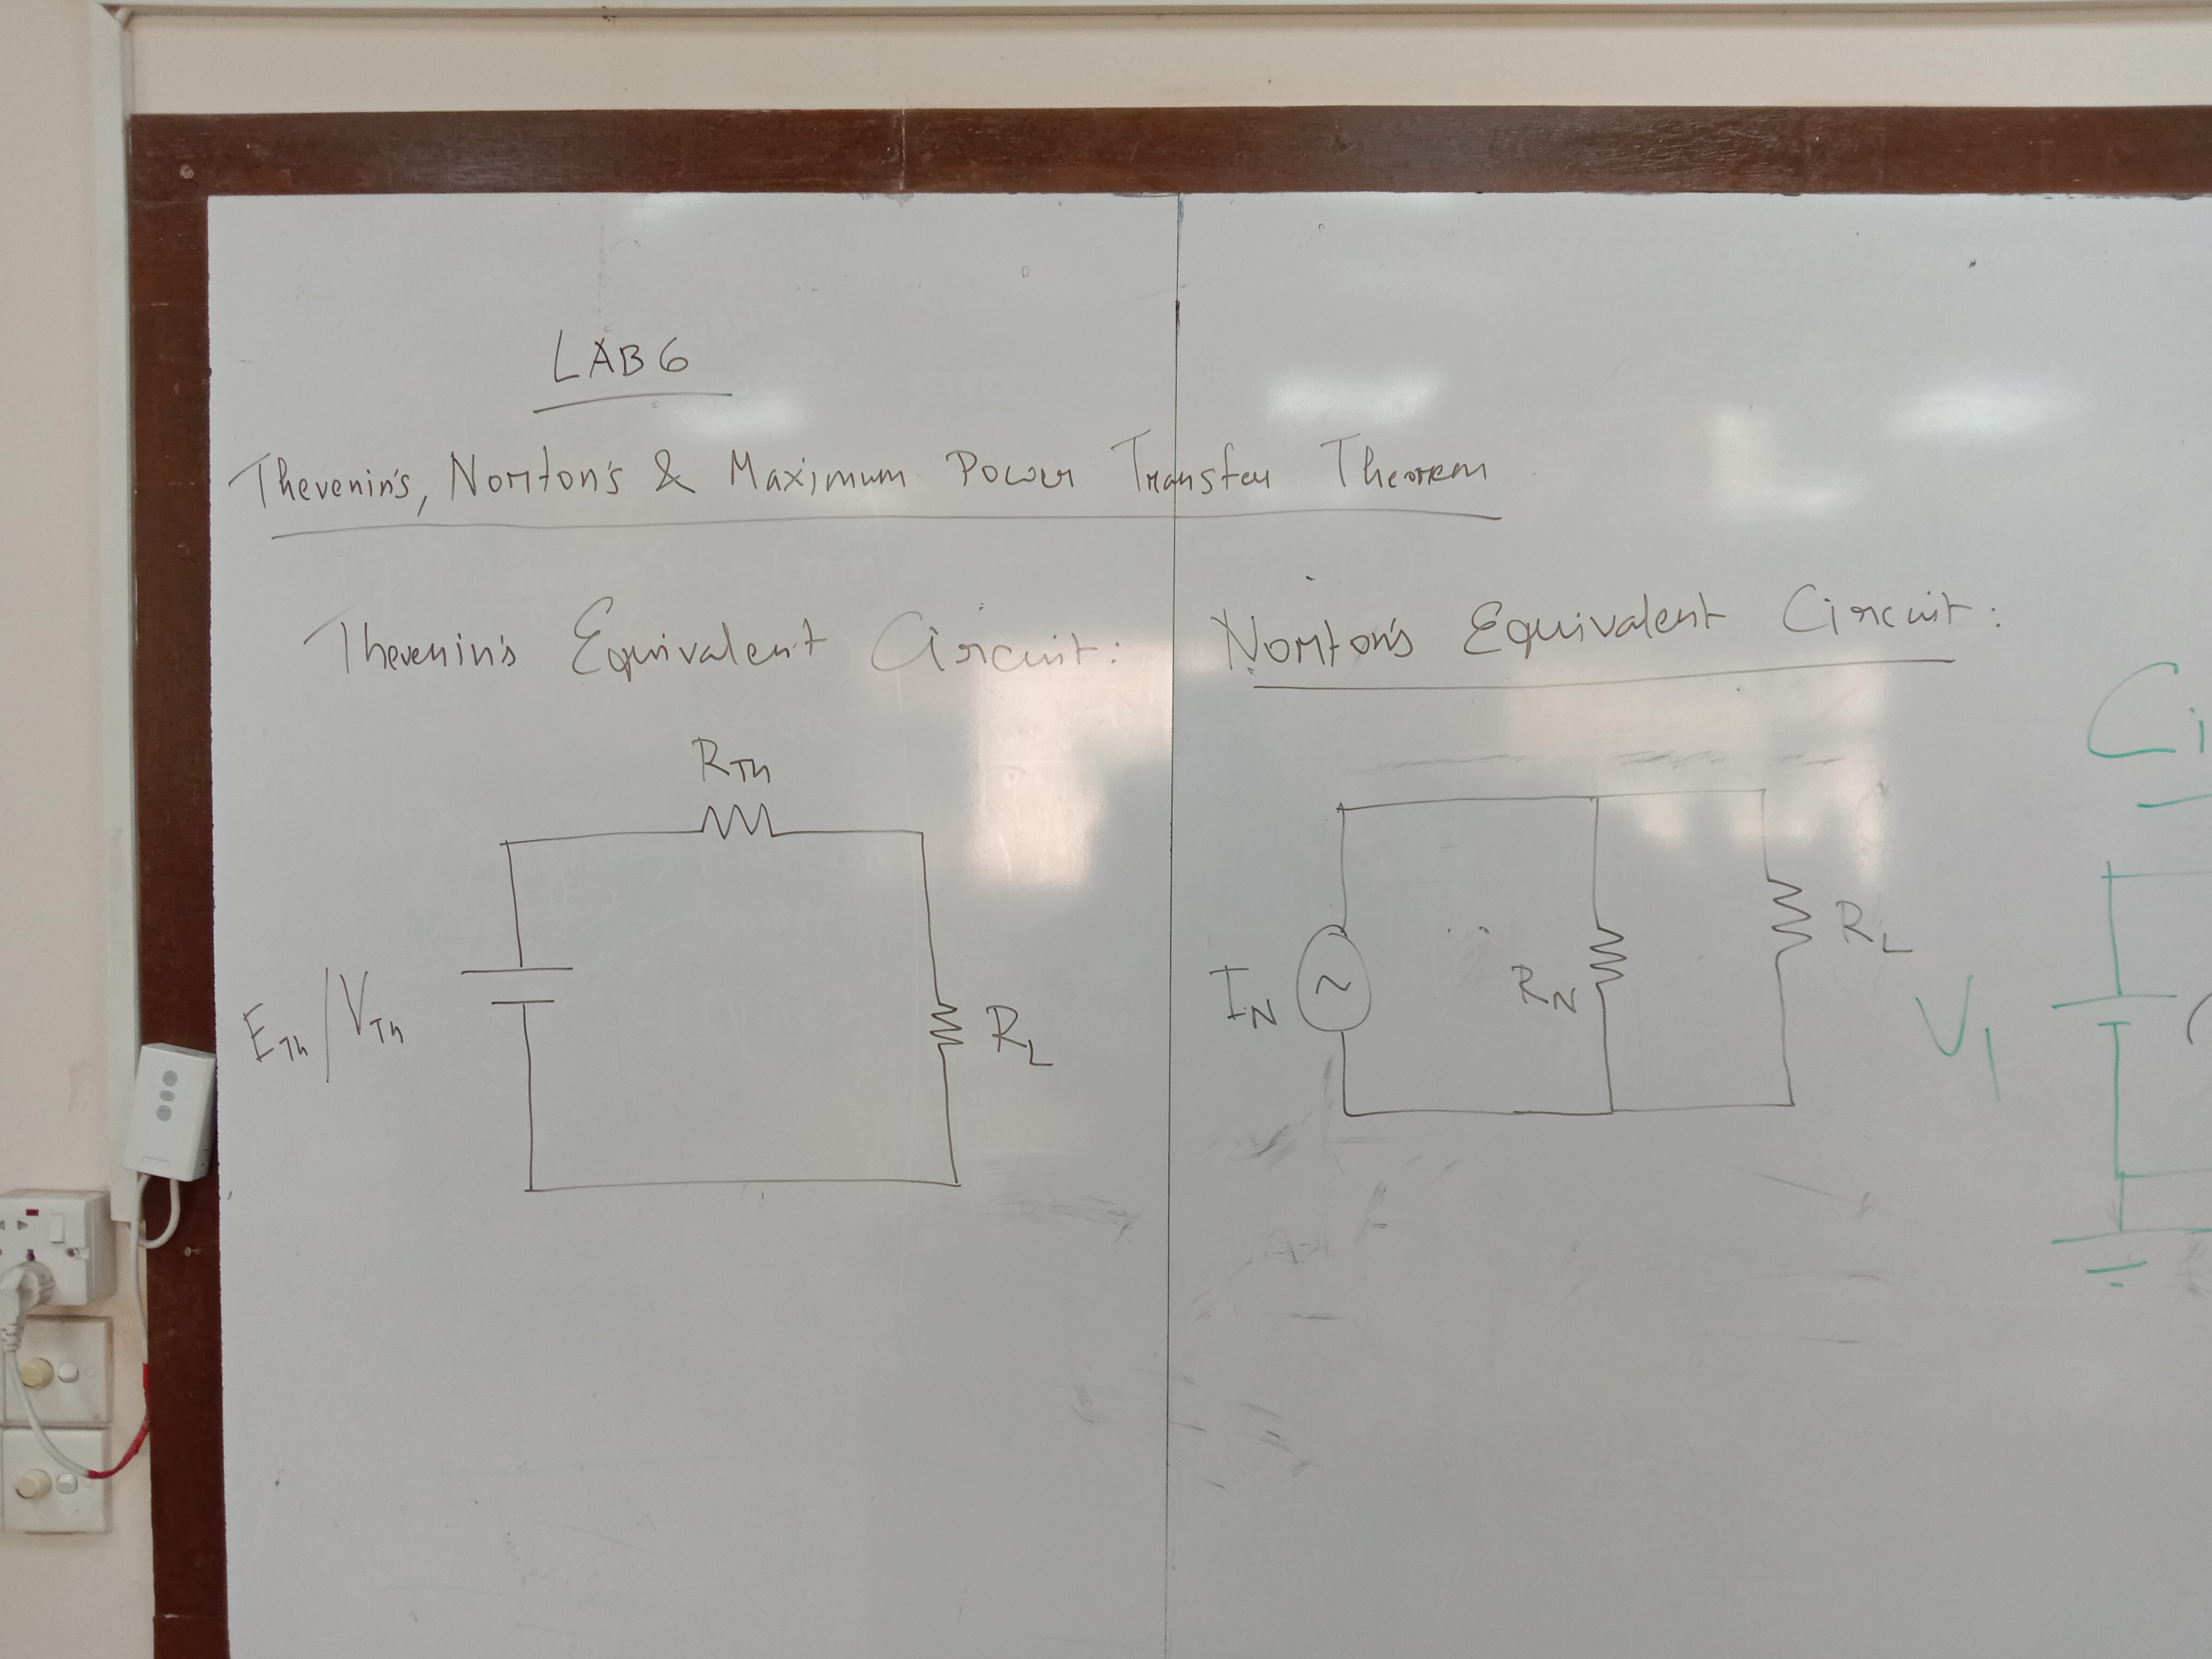 LAB 6
Thevenin's, Norton's & Maximum Power Transfer Theorem
Thevenin's Equivalent Circuit:
R_Th
E_Th / V_Th
R_L
Norton's Equivalent Circuit:
I_N
~
R_N
R_L
Ci
V1